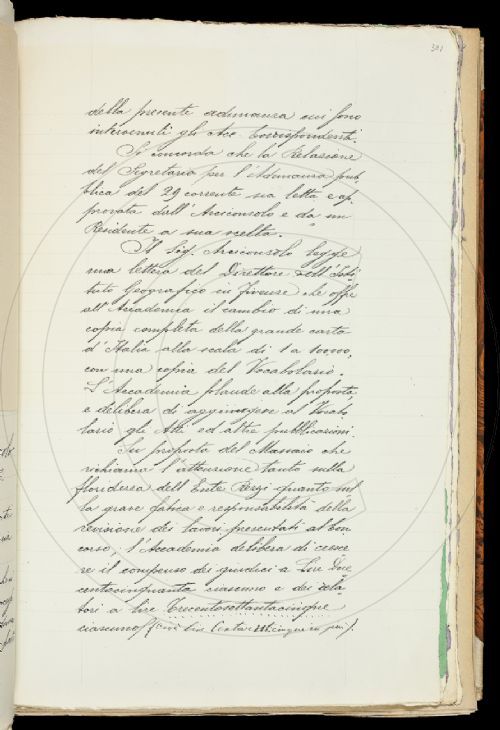 301
della presente adunanza cui sono
intervenuti gli Acc. Corrispondenti.
Si concorda che la Relazione
del Segretario per l'Adunanza pub-
blica del 29 corrente sia letta e ap-
provata dall'Arciconsolo e da un
Residente a sua scelta.
Il Sig. Arciconsolo legge
una lettera del Direttore dell'Isti-
tuto Geografico in Firenze che offre
all'Accademia il cambio di una
copia completa della grande carta
d'Italia alla scala di 1 a 100000,
con una copia del Vocabolario.
L'Accademia plaude alla proposta
e delibera di aggiungere al Vocab-
lario gli Atti ed altre pubblicazioni.
Su proposta del Massaio che
richiama l'attenzione tanto sulla
floridezza dell'Ente Rezzi quanto sul
la grave fatica e responsabilità della
revisione dei lavori presentati al Con-
corso, l'Accademia delibera di cresce-
re il compenso dei giudici a Lire Due
centocinquanta ciascuno e dei rela-
tori a lire Trecentosettantacinque
ciascuno (Cioè lire Cento in più).